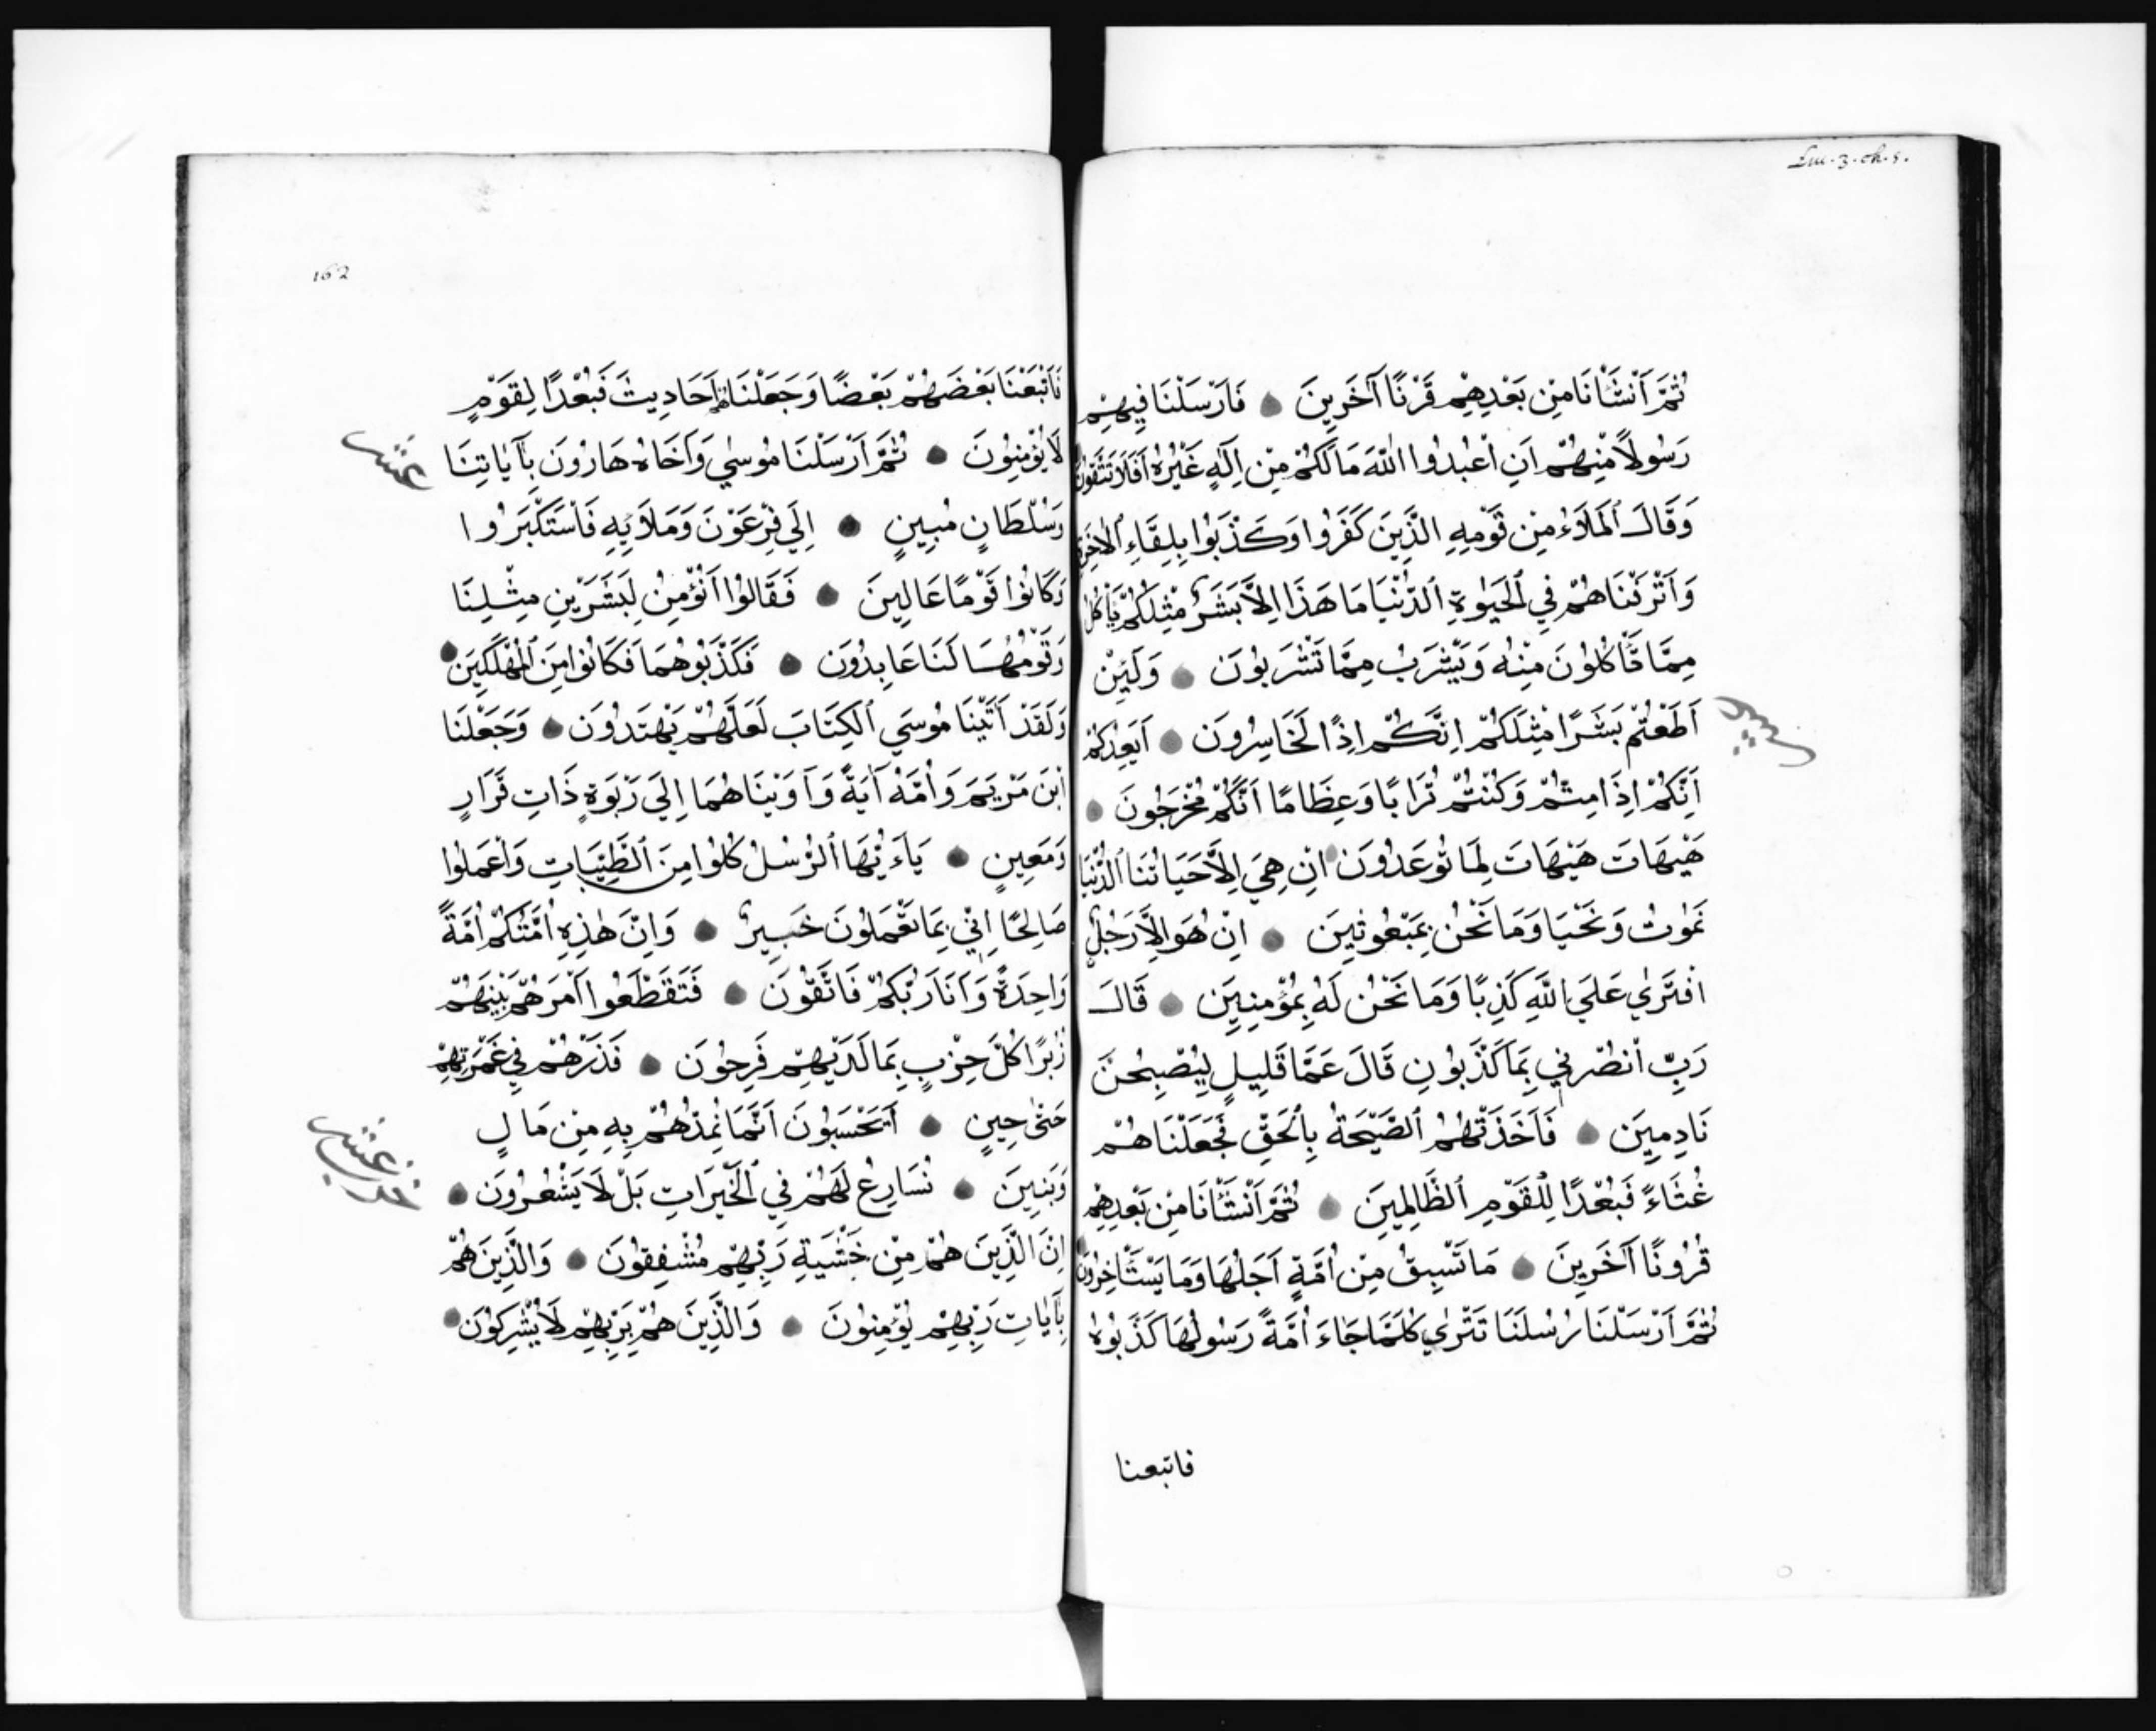 Lm. 3. ch. 5.
ثُمَّ اَنْشَأْنَا مِنْ بَعْدِهِمْ قَرْنًا آخَرِينَ فَاَرْسَلْنَا فِيهِمْ
رَسُولاً مِنْهُمْ اَنِ اعْبُدُوا اللّٰهَ مَا لَكُمْ مِنْ اِلٰهٍ غَيْرُهُ اَفَلَا تَتَّقُونَ
وَقَالَ ٱلْمَلَاءُ مِنْ قَوْمِهِ الَّذِينَ كَفَرُوا وَكَذَّبُوا بِلِقَاءِ ٱلْاٰخِرَةِ
وَاَتْرَفْنَاهُمْ فِي ٱلْحَيٰوةِ ٱلدُّنْيَا مَا هَذَا اِلَّا بَشَرٌ مِثْلُكُمْ يَأْكُلُ
مِمَّا تَأْكُلُونَ مِنْهُ وَيَشْرَبُ مِمَّا تَشْرَبُونَ وَلَئِنْ
اَطَعْتُمْ بَشَرًا مِثْلَكُمْ اِنَّكُمْ اِذًا لَخَاسِرُونَ اَيَعِدُكُمْ
اَنَّكُمْ اِذَا مِتُّمْ وَكُنْتُمْ تُرَابًا وَعِظَامًا اَنَّكُمْ مُخْرَجُونَ
هَيْهَاتَ هَيْهَاتَ لِمَا تُوعَدُونَ اِنْ هِيَ اِلَّا حَيَاتُنَا ٱلدُّنْيَا
نَمُوتُ وَنَحْيَا وَمَا نَحْنُ بِمَبْعُوثِينَ اِنْ هُوَ اِلَّا رَجُلٌ
افْتَرٰي عَلَي اللّٰهِ كَذِبًا وَمَا نَحْنُ لَهُ بِمُؤْمِنِينَ قَالَ
رَبِّ انْصُرْنِي بِمَا كَذَّبُونِ قَالَ عَمَّا قَلِيلٍ لِيُصْبِحُنَّ
نَادِمِينَ فَاَخَذَتْهُمُ ٱلصَّيْحَةُ بِالْحَقِّ فَجَعَلْنَاهُمْ
غُثَاءً فَبُعْدًا لِلْقَوْمِ ٱلظَّالِمِينَ ثُمَّ اَنْشَأْنَا مِنْ بَعْدِهِمْ
قُرُونًا آخَرِينَ مَا تَسْبِقُ مِنْ اُمَّةٍ اَجَلَهَا وَمَا يَسْتَأْخِرُونَ
ثُمَّ اَرْسَلْنَا رُسُلَنَا تَتْرٰي كُلَّمَا جَاءَ اُمَّةً رَسُولُهَا كَذَّبُوهُ
فاتبعنا
162
فَاَتْبَعْنَا بَعْضَهُمْ بَعْضًا وَجَعَلْنَاهُمْ اَحَادِيثَ فَبُعْدًا لِقَوْمٍ
لَا يُؤْمِنُونَ ثُمَّ اَرْسَلْنَا مُوسٰي وَاَخَاهُ هَارُونَ بِآيَاتِنَا
وَسُلْطَانٍ مُبِينٍ اِلَي فِرْعَوْنَ وَمَلَائِهِ فَاسْتَكْبَرُوا
وَكَانُوا قَوْمًا عَالِينَ فَقَالُوا اَنُؤْمِنُ لِبَشَرَيْنِ مِثْلِنَا
وَقَوْمُهُمَا لَنَا عَابِدُونَ فَكَذَّبُوهُمَا فَكَانُوا مِنَ ٱلْمُهْلَكِينَ
وَلَقَدْ آتَيْنَا مُوسَي ٱلْكِتَابَ لَعَلَّهُمْ يَهْتَدُونَ وَجَعَلْنَا
ابْنَ مَرْيَمَ وَاُمَّهُ آيَةً وَآوَيْنَاهُمَا اِلَي رَبْوَةٍ ذَاتِ قَرَارٍ
وَمَعِينٍ يَاءَيُّهَا ٱلرُّسُلُ كُلُوا مِنَ ٱلطَّيِّبَاتِ وَاعْمَلُوا
صَالِحًا اِنِّي بِمَا تَعْمَلُونَ خَبِيرٌ وَاِنَّ هٰذِهِ اُمَّتُكُمْ اُمَّةً
وَاحِدَةً وَاَنَا رَبُّكُمْ فَاتَّقُونَ فَتَقَطَّعُوا اَمْرَهُمْ بَيْنَهُمْ
زُبُرًا كُلُّ حِزْبٍ بِمَا لَدَيْهِمْ فَرِحُونَ فَذَرْهُمْ فِي غَمْرَتِهِمْ
حَتّٰى حِينٍ اَيَحْسَبُونَ اَنَّمَا نُمِدُّهُمْ بِهِ مِنْ مَالٍ
وَبَنِينَ نُسَارِعُ لَهُمْ فِي ٱلْخَيْرَاتِ بَلْ لَا يَشْعُرُونَ
اِنَّ الَّذِينَ هُمْ مِنْ خَشْيَةِ رَبِّهِمْ مُشْفِقُونَ وَالَّذِينَ هُمْ
بِآيَاتِ رَبِّهِمْ يُؤْمِنُونَ وَالَّذِينَ هُمْ بِرَبِّهِمْ لَا يُشْرِكُونَ
عشر